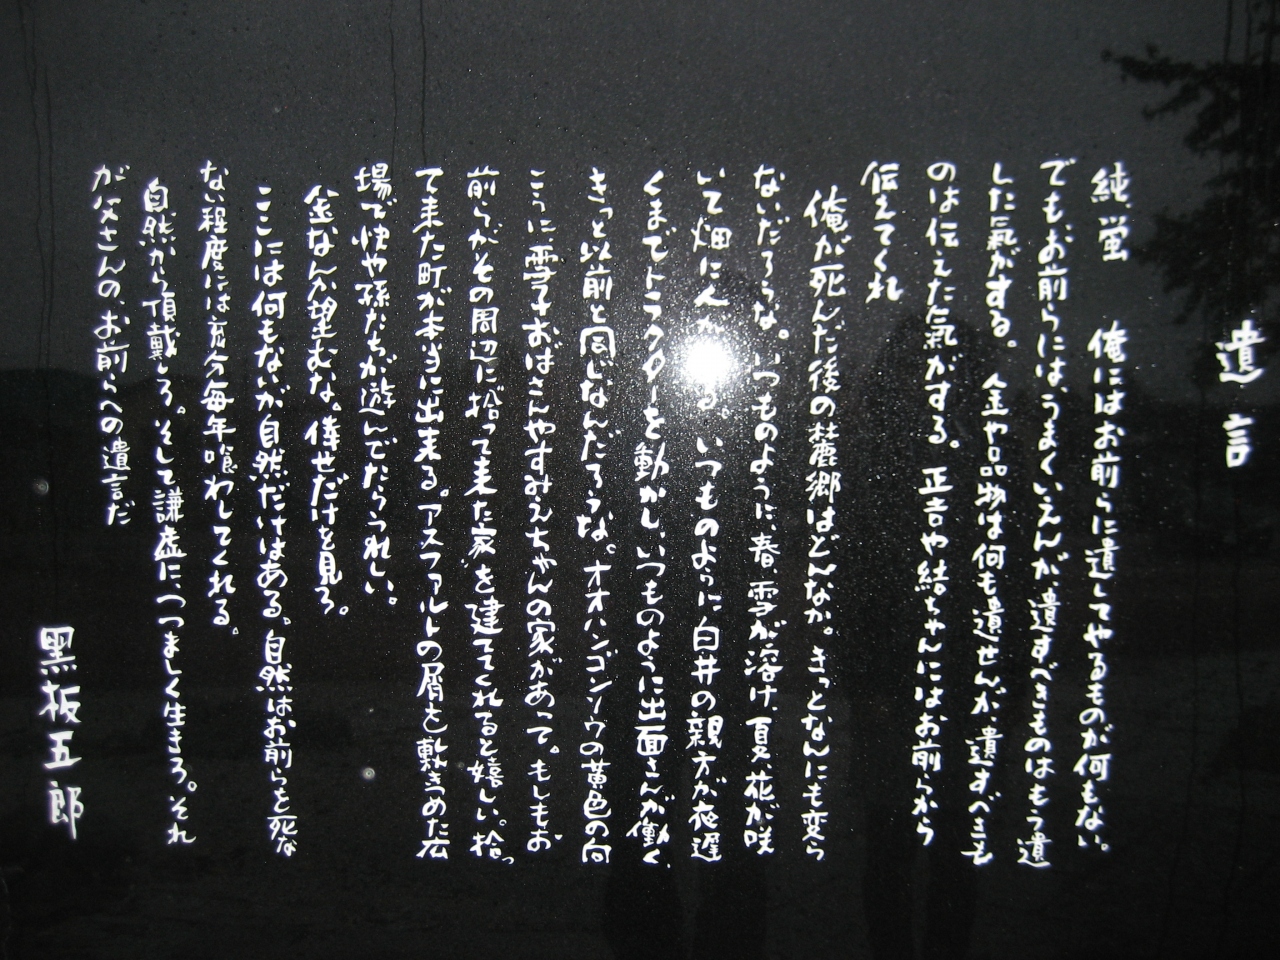 遺言
純 蛍 俺にはお前らに遺してやるものが何もない。
でもお前らには、うまくいえんが、遺すべきものはもう遺
した氣がする。金や品物は何も遺せんが、遺すべきも
のは伝えた氣がする。正吉や結ちゃんにはお前らから
伝えてくれ
俺が死んだ後の麓郷はどんなか。きっとなんにも変ら
ないだろうな。いつものように、春、雪が溶け、夏、花が咲
いて畑に人が る。いつものように白井の親方が夜遅
くまでトラクターを動かし、いつものように出面さんが働く、
きっと以前と同じなんだろうな。オオハンゴンソウの黄色の向
こうに、雪子おばさんやすみえちゃんの家があって。もしもお
前らがその周辺に拾って来た家を建ててくれると嬉しい。拾っ
て来た町が本当に出来る。アスファルトの屑を敷きつめた広
場で快や孫たちが遊んでたらうれしい。
金なんか望むな。倖せだけを見ろ。
ここには何もないが自然だけはある。自然はお前らを死な
ない程度には充分毎年喰わしてくれる。
自然から頂戴しろ。そして謙虚に、つつましく生きろ。それ
が父さんの、お前らへの遺言だ
黒板五郎